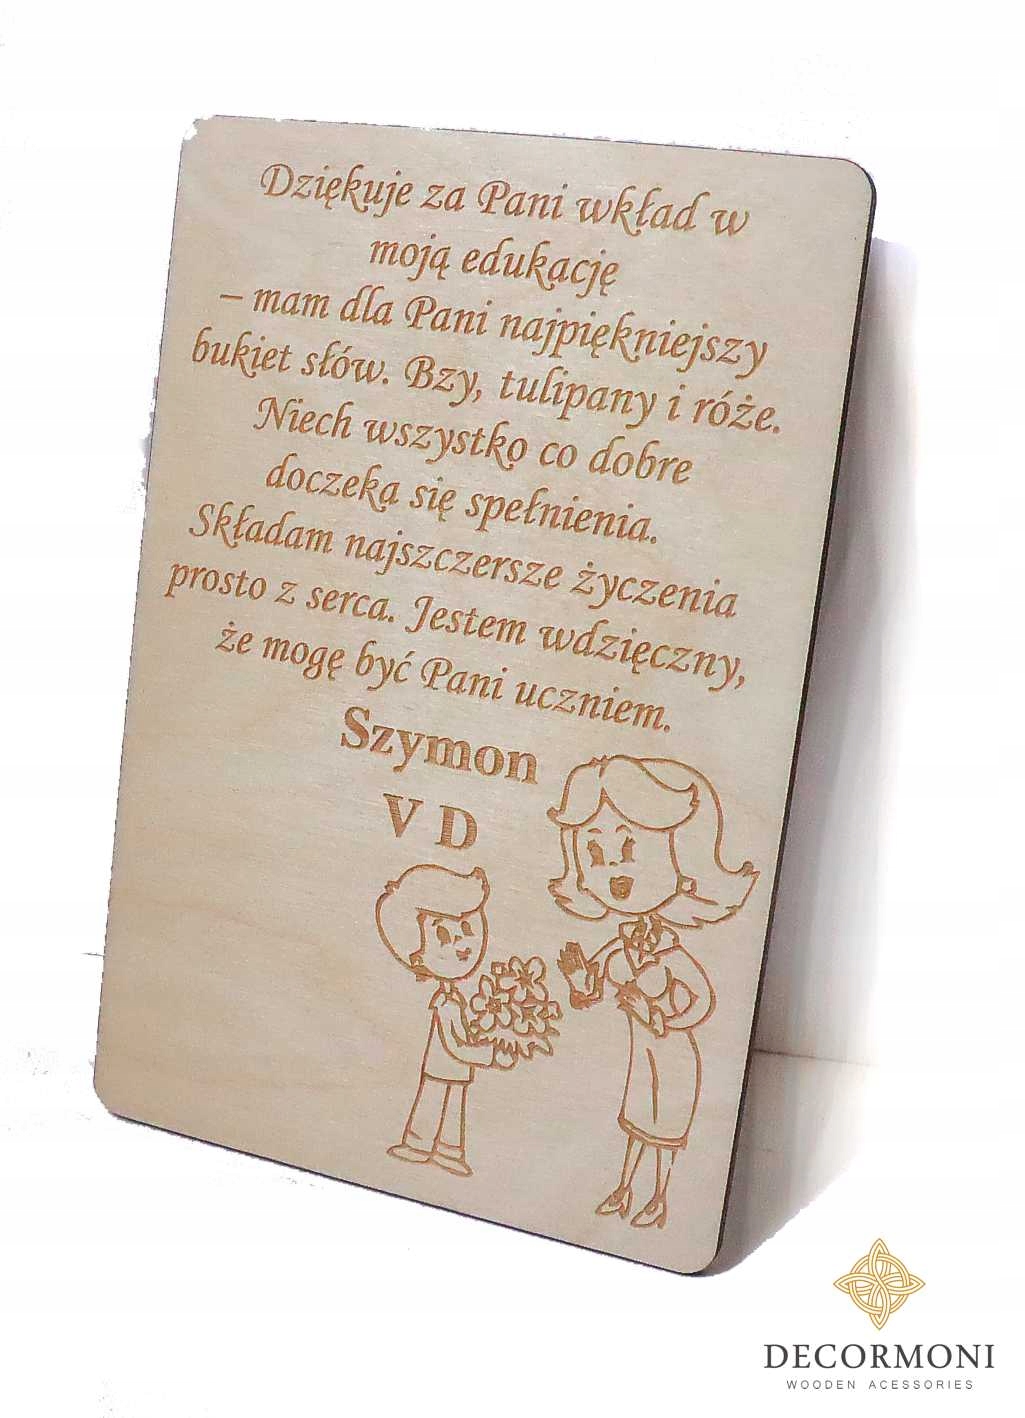 Dziękuje za Pani wkład w
moją edukację
– mam dla Pani najpiękniejszy
bukiet słów. Bzy, tulipany i róże.
Niech wszystko co dobre
doczeka się spełnienia.
Składam najszczersze życzenia
prosto z serca. Jestem wdzięczny,
że mogę być Pani uczniem.
Szymon
V D
DECORMONI
WOODEN ACESSORIES